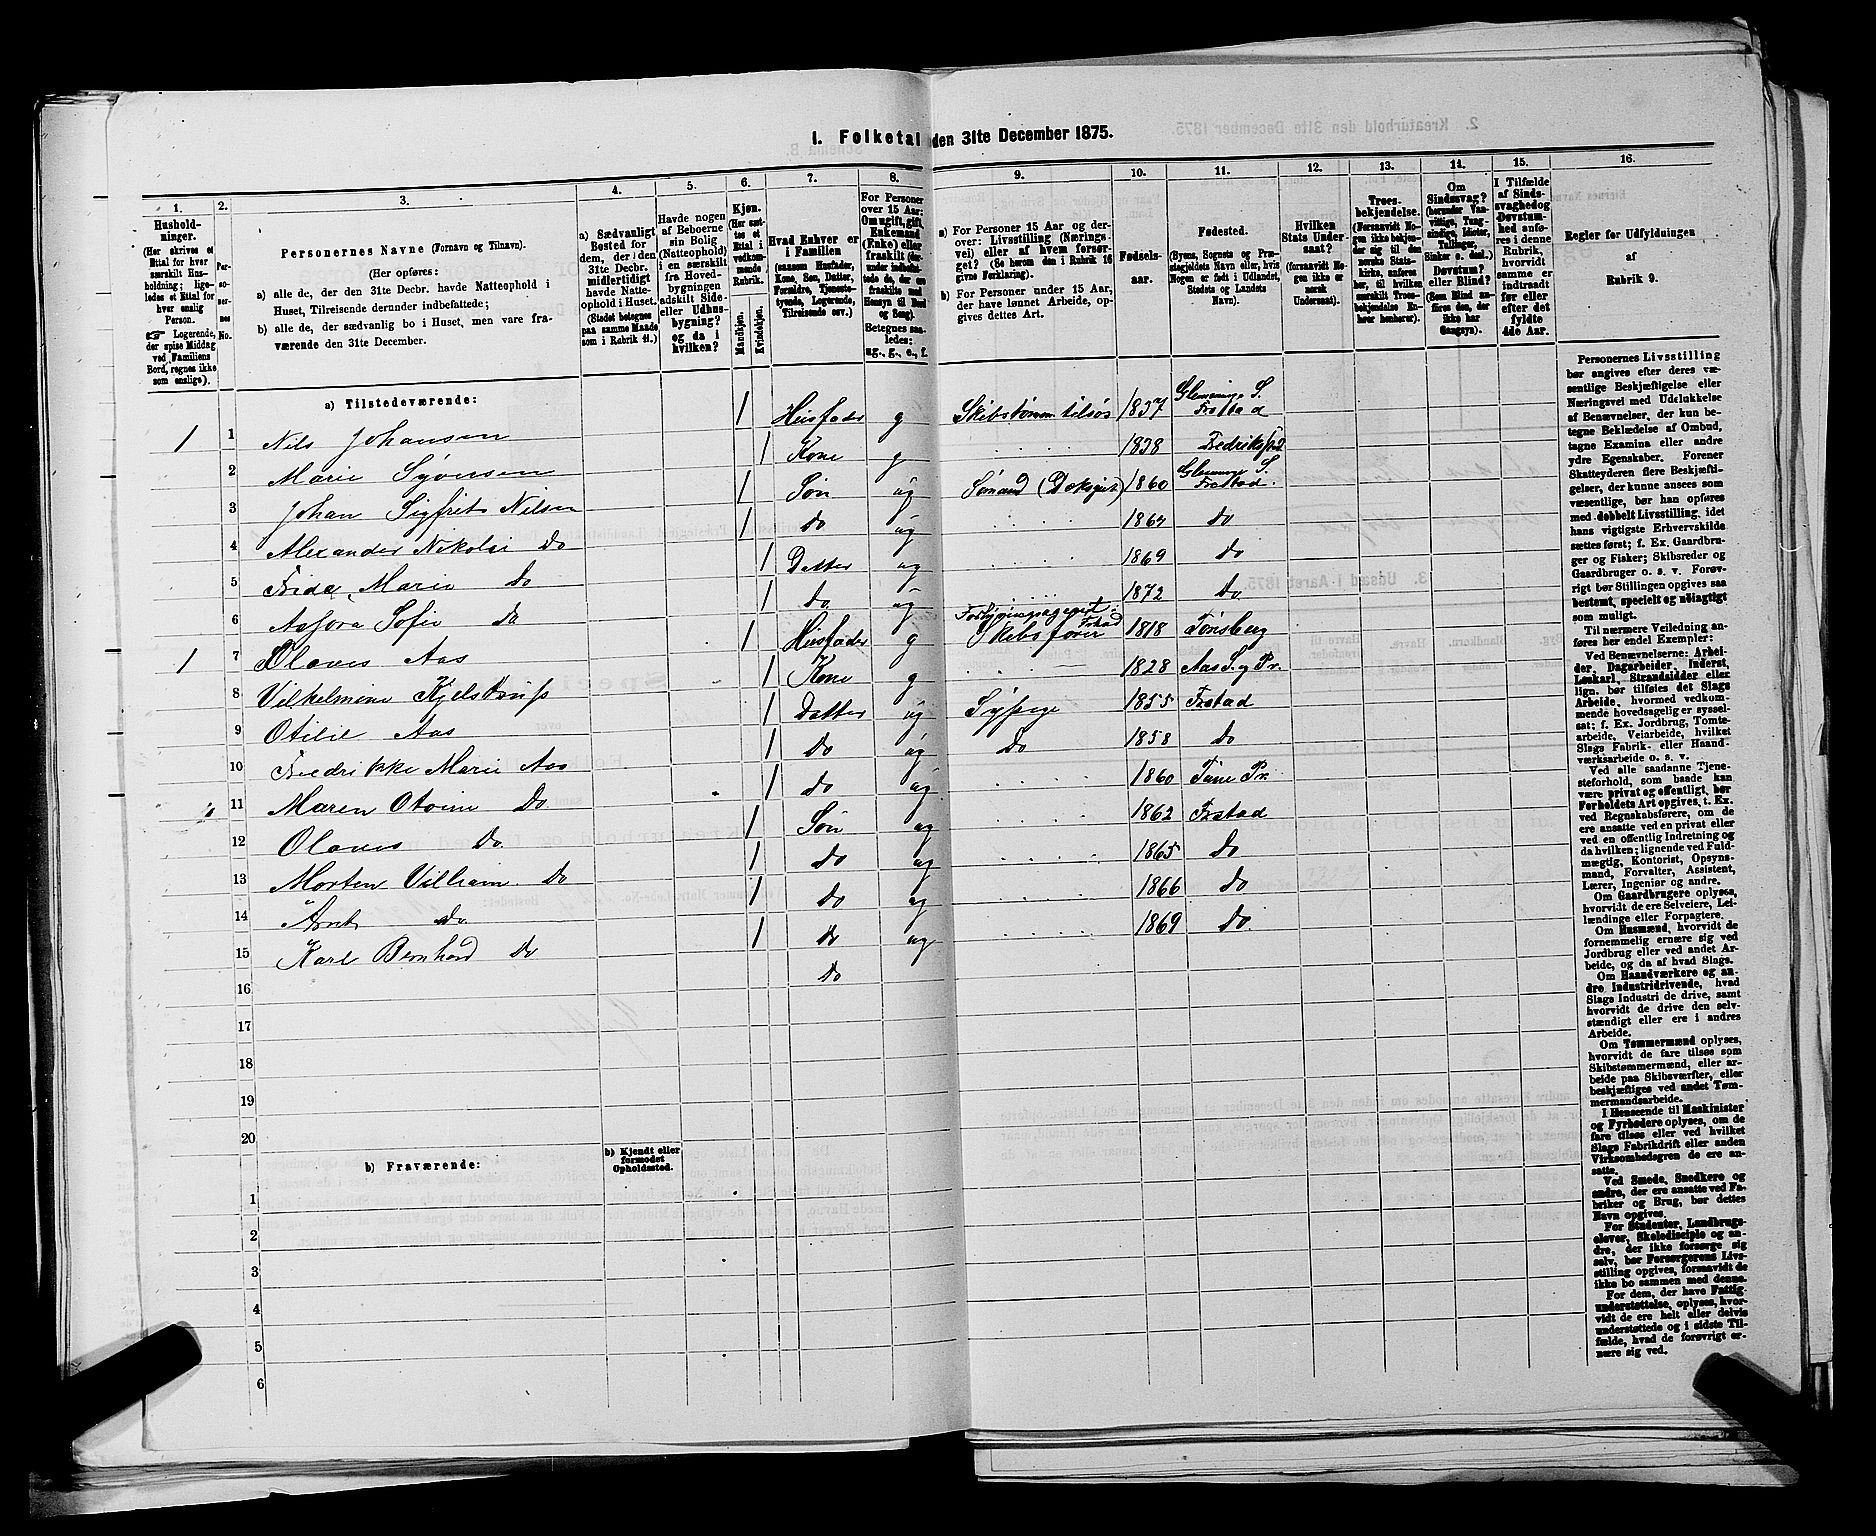 I. Folketal
den 31te December 1875.
1. 2. 3. 4. 5. 6. 7. 8. 9. 10. 11. 12. 13. 14. 15. 16.
Hushold-
ninger.
(Her skrives et
Ettal for hver
særskilt Hus-
holdning; lige-
ledes et Ettal for
hver enslig
Person.
☞ Logerende,
der spise Middag
ved Familiens
Bord, regnes ikke
som enslige).
Per-
so-
ner-
nes
No.
Personernes Navne (Fornavn og Tilnavn).
(Her opføres:
a) alle de, der den 31te Decbr. havde Natteophold i
Huset, Tilreisende derunder indbefattede;
b) alle de, der sædvanlig bo i Huset, men vare fra-
værende den 31te December.
a) Sædvanligt
Bosted for
dem, der den
31te Decbr.
midlertidigt
havde Natte-
ophold i Huset.
(Stedet betegnes
paa samme Maade
som i Rubrik 11.)
Havde nogen
af Beboerne
sin Bolig
(Natteophold)
i en særskilt
fra Hoved-
bygningen
adskilt Side-
eller Udhus-
bygning?
og da i
hvilken?
Kjøn.
(Her sæt-
tes et
Ettal i
vedkom-
mende
Rubrik.
Mandkjøn.
Kvindekjøn.
Hvad Enhver er
i Familien
(saasom Husfader,
Kone, Søn, Datter,
Forældre, Tjeneste-
tyende, Logerende,
Tilreisende osv.)
For Personer
over 15 Aar:
Om ugift, gift,
Enkemand
(Enke) eller
fraskilt
Betegnes saa-
ledes:
ug., g., e., f.
a) For Personer 15 Aar og der-
over: Livsstilling (Nærings-
vei) eller af hvem forsør-
get? (Se herom den i Rubrik 16
givne Forklaring).
b) For Personer under 15 Aar,
der have lønnet Arbeide, op-
gives dettes Art.
Fødsels-
aar.
Fødested.
(Byens, Sognets og Præ-
stegjeldets Navn eller, hvis
Nogen er født i Udlandet,
Stedets og Landets
Navn).
Hvilken
Stats Under-
saat?
(forsaavidt No-
gen ikke er
norsk
Undersaat).
Troes-
bekjendelse.
(Forsaavidt No-
gen ikke bekjen-
der sig til den
norske Stats-
kirke, anføres
her, til hvilken
særskilt Troes-
bekjendelse En-
hver henhører).
Om
Sindssvag?
(herunder Van-
vittige, Tung-
sindige, Idioter,
Tullinger,
Sinker o. desl.)
Døvstum?
eller Blind?
(Som Blind an-
føres den, der
ikke har
Gangsyn).
I Tilfælde
af Sinds-
svaghed og
Døvstum-
hed anfø-
res i denne
Rubrik,
hvorvidt
samme er
indtraadt
før eller
efter det
fyldte
4de Aar.
Regler for Udfyldningen
af
Rubrik 9.
a) Tilstedeværende:
1 1 Nils Johansen 1 Husfader g Skibstømm tilsøs 1837 Glemminge S. Frstad
2 Marie Syversen 1 Kone g 1838
3 Johan Sigfrit Nilsen 1 Søn ug Sømand 1860 Glemminge S. Frstad.
4 Alexander Nikolai Do 1 Do ug Do
5 Frida Marie Do 1 Datter ug 1869 Do
6 Sofie Do 1 Do ug 1872 Do
1 7 Olaves Aas 1 Husfader g Skibsfører 1818 Tønsberg
8 Vilhelmine 1 Kone g 1828 Aas S. og Pr.
9 Otilie Aas 1 Datter ug Sypige 1855 Frstad
10 Fredrikke Marie Aas 1 Do ug Do 1858 Do
11 Maren Do 1 Do ug 1860 Tune Pr.
12 Olaves Do 1 Søn ug 1862 Frstad
13 Morten Villiam Do 1 Do ug 1865 Do
14 Do 1 Do ug 1866 Do
15 Karl Bernhard Do 1 Do ug 1869 Do
16 Do
17
18
19
20
b) Fraværende:
b) Kjendt eller
formodet
Opholdssted.
1
2
3
4
5
6
Personernes Livsstilling
bør angives efter deres væ-
sentlige Beskjæftigelse eller
Næringsvei med Udelukkelse
af Benævnelser, der kun be-
tegne Beklædelse af Ombud,
tagne Examina eller andre
ydre Egenskaber. Forener
Skatteyderen flere Beskjæfti-
gelser, der kunne ansees som
væsentlige, bør han opføres
med dobbelt Livsstilling, idet
hans vigtigste Erhvervskilde
sættes først; f. Ex. Gaardbru-
ger og Fisker; Skibsreder og
Gaardbruger o. s. v. Forøv-
rigt bør Stillingen opgives saa
bestemt, specielt og nøiagtigt
som muligt.
Til nærmere Veiledning an-
føres her endel Exempler:
Ved Benævnelserne: Arbei-
der, Dagarbeider, Inderst,
Løskarl, Strandsidder eller
lign. bør tilføies det Slags
Arbeide, hvormed vedkom-
mende hovedsagelig er syssel-
sat; f. Ex. Jordbrug, Tomte-
arbeide, Veiarbeide, hvilket
Slags Fabrik- eller Haand-
værksarbeide o. s. v.
Ved alle saadanne Tjene-
steforhold, som baade kan
være privat og offentligt, bør
Forholdets Art opgives, t. Ex.
ved Regnskabsførere, om de
ere ansatte ved en privat eller
ved en offentlig Indretning og
da hvilken; lignende ved Fuld-
mægtig, Kontorist, Opsyns-
mand, Forvalter, Assistent,
Lærer, Ingeniør og andre.
Om Gaardbrugere oplyses,
hvorvidt de ere Selveiere, Lei-
lændinge eller Forpagtere.
Om Husmænd, hvorvidt de
fornemmelig ernære sig ved
Jordbrug eller ved andet Ar-
beide, og da af hvad Slags.
Om Haandværkere og an-
dre Industridrivende, hvad
Slags Industri de drive, samt
hvorvidt de drive den selv-
stændigt eller ere i andres
Arbeide.
Om Tømmermænd oplyses,
hvorvidt de fare tilsøs som
Skibstømmermænd, eller ar-
beide paa Skibsværfter, eller
beskjæftiges ved andet Tøm-
mermandsarbeide.
I Henseende til Maskinister
og Fyrbødere oplyses, om de
fare tilsøs eller ved hvilket
Slags Fabrikdrift eller anden
Virksomhedsgren de ere an-
satte.
Ved Smede, Snedkere og
andre, der ere ansatte ved Fa-
briker og Brug, bør dettes
Navn opgives.
For Studenter, Landbrugs-
elever, Skoledisciple og an-
dre, der ikke forsørge sig
selv, bør Forsørgerens Livs-
stilling opgives, forsaavidt de
ikke bo sammen med denne.
For dem, der have Fattig-
understøttelse, oplyses, hvor-
vidt de ere helt eller delvis
understøttede og i sidste Til-
fælde, hvad de forøvrigt er-
nære sig ved.